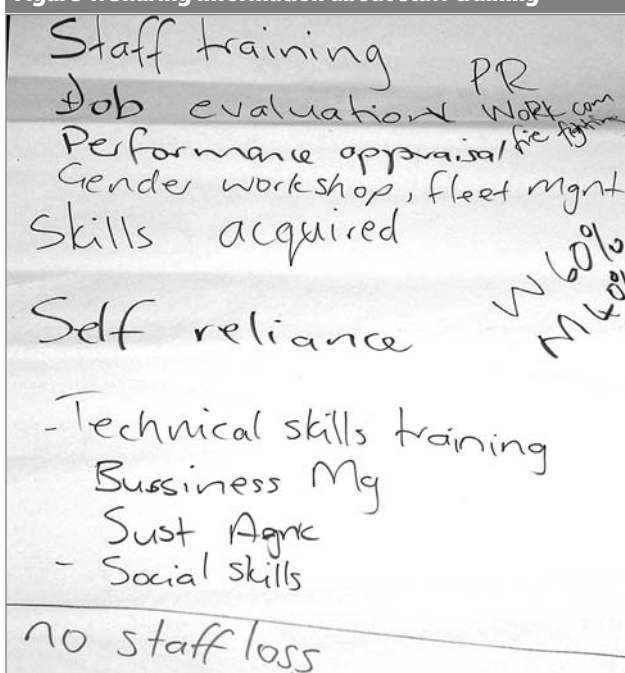 Staff training
PR
Job evaluation Work com
Performance appraisal fie fighting
Gender workshop, fleet mgnt
Skills acquired
W 60%
M 40%
Self reliance
- Technical skills training
Bussiness Mg
Sust Agric
- Social skills
no staff loss